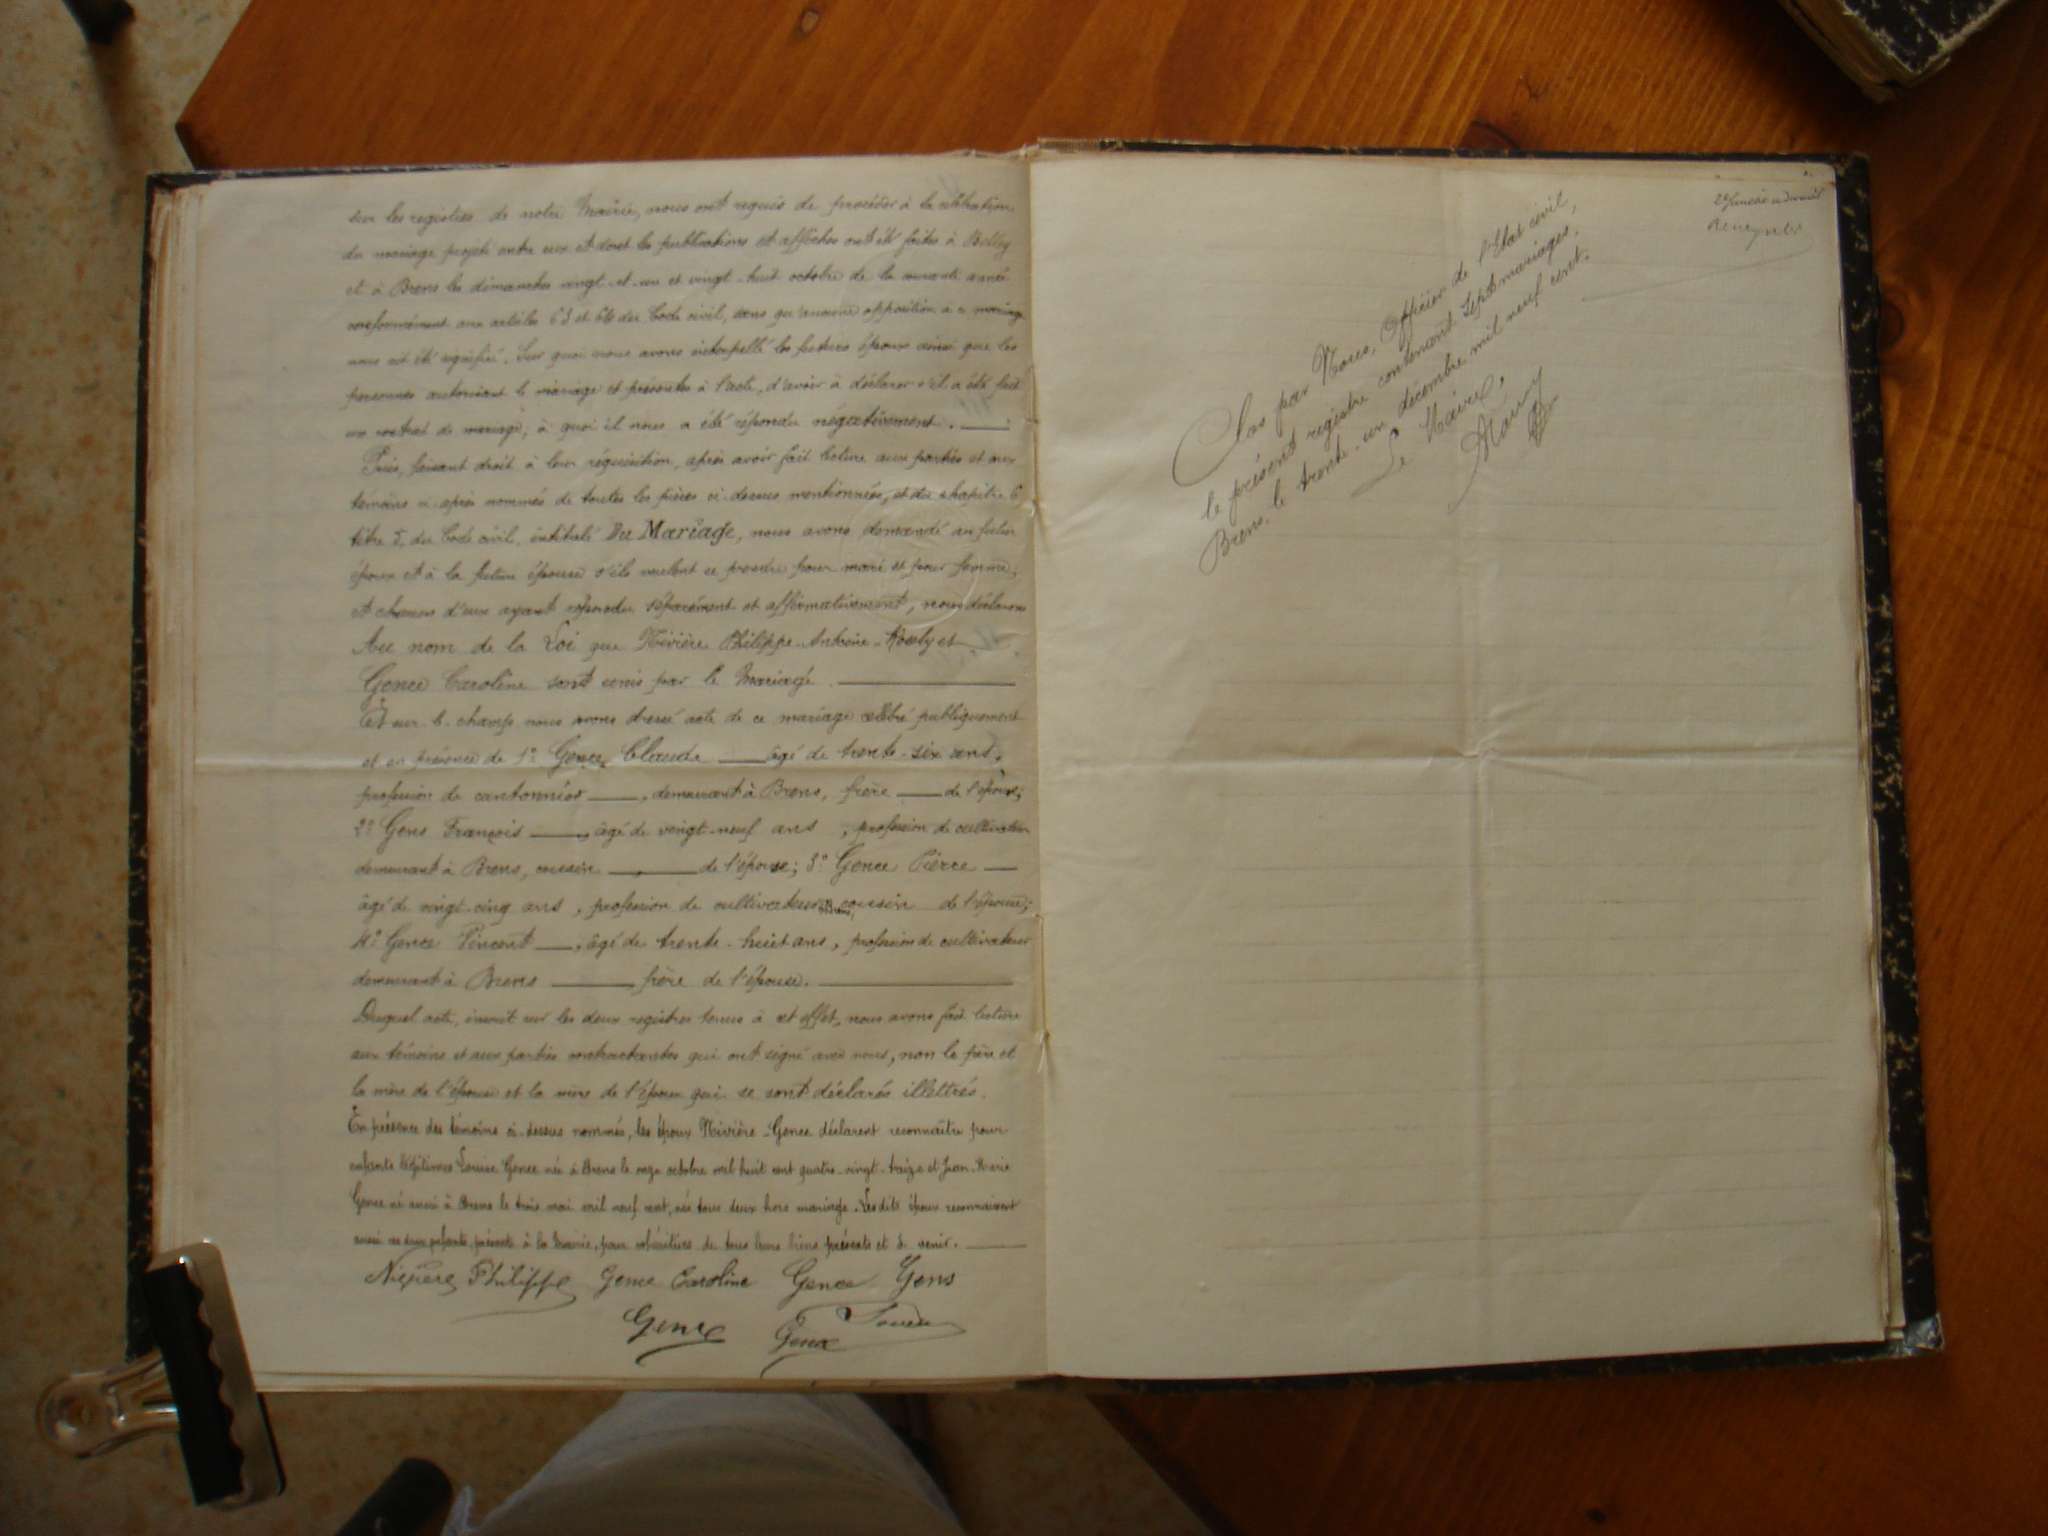 sur les registres de notre Mairie, nous ont requis de procéder à la célébration
du mariage projeté entre eux et dont les publications et affiches ont été faites à Belley
et à Brens les dimanches vingt-et-un et vingt-huit octobre de la courante année
conformément aux articles 63 et 64 du Code civil, sans qu'aucune opposition à ce mariage
nous ait été signifiée. Sur quoi nous avons interpellé les futurs époux ainsi que les
personnes autorisant le mariage et présentes à l'acte, d'avoir à déclarer s'il a été fait
un contrat de mariage, à quoi il nous a été répondu négativement.
Puis, faisant droit à leur réquisition, après avoir fait lecture aux parties et aux
témoins ci-après nommés de toutes les pièces ci-dessus mentionnées, et du chapitre 6
titre 5, du Code civil, intitulé Du Mariage, nous avons demandé au futur
époux et à la future épouse s'ils veulent se prendre pour mari et pour femme;
et chacun d'eux ayant répondu séparément et affirmativement, nous déclarons
Au nom de la Loi que Nivière Philippe-Antoine- et
Gence Caroline sont unis par le Mariage.
Et sur-le-champ nous avons dressé acte de ce mariage célébré publiquement
et en présence de 1º Gence Claude âgé de trente-six ans,
profession de cantonnier, demeurant à Brens, frère de l'épouse;
2º Gens François, âgé de vingt-neuf ans, profession de cultivateur
demeurant à Brens, cousin de l'épouse; 3º Gence Pierre
âgé de vingt-cinq ans, profession de cultivateur à Brens, cousin de l'épouse;
4º Gence Vincent, âgé de trente-huit ans, profession de cultivateur
demeurant à Brens frère de l'épouse.
Duquel acte, inscrit sur les deux registres tenus à cet effet, nous avons fait lecture
aux témoins et aux parties contractantes qui ont signé avec nous, non le père et
la mère de l'épouse et la mère de l'époux qui se sont déclarés illettrés.
En présence des témoins ci-dessus nommés, les époux Nivière-Gence déclarent reconnaître pour
enfants légitimes Louise Gence née à Brens le onze octobre mil huit cent quatre-vingt-treize et Jean-Marie
Gence né aussi à Brens le trois mai mil neuf cent, nés tous deux hors mariage. Lesdits époux reconnaissent
aussi ces deux enfants, présents à la Mairie, pour héritiers de tous leurs biens présents et à venir.
Nivière Philippe Gence Caroline Gence Gens
Gence Gence
Clos par Nous, Officier de l'Etat civil,
le présent registre contenant sept mariages.
Brens, le trente-un décembre mil neuf cent.
Le Maire,